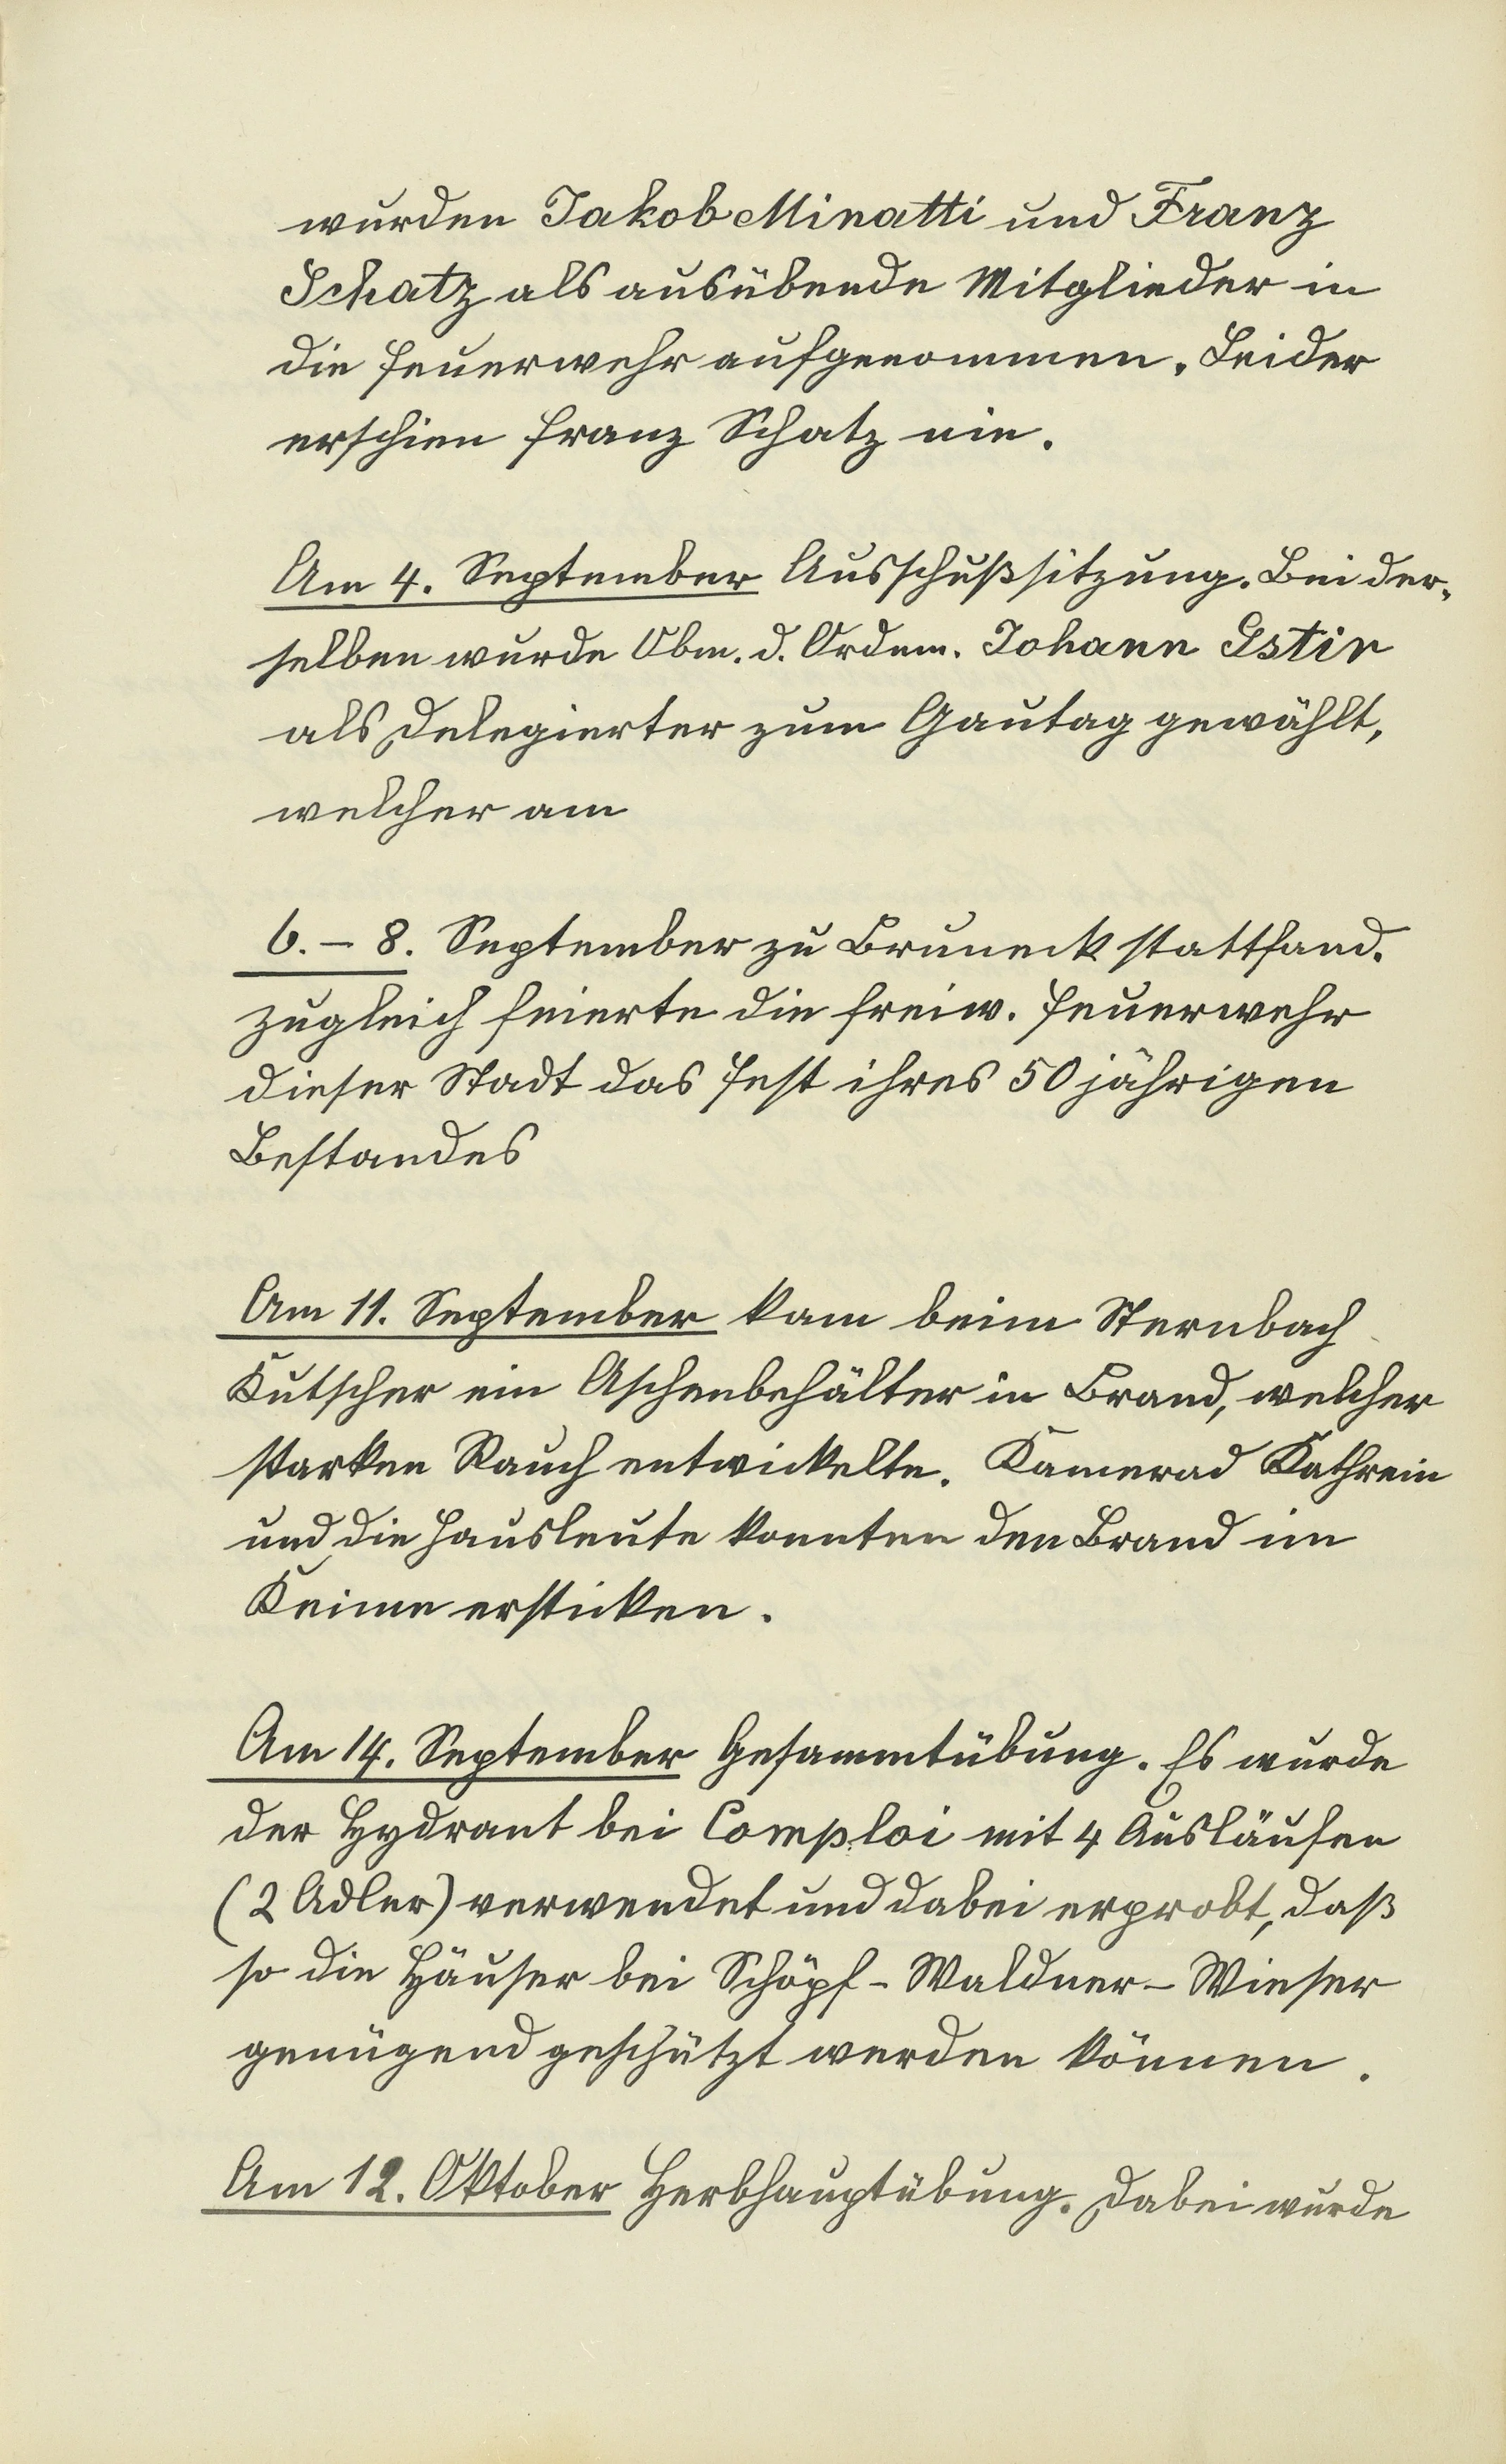 wurden Jakob Minatti und Franz
Schatz als ausübende Mitglieder in
die Feuerwehr aufgenommen. Leider
erschien Franz Schatz nie.
Am 4. September Ausschußsitzung. Bei der-
selben wurde Obm. d. Ordnm. Johann Gstir
als Delegierter zum Gautag gewählt,
welcher am
6. - 8. September zu Bruneck stattfand.
Zugleich feierte die freiw. Feuerwehr
dieser Stadt das Fest ihres 50 jährigen
Bestandes
Am 11. September kam beim Sternbach
Kutscher ein Aschenbehälter in Brand, welcher
starken Rauch entwickelte. Kamerad Kathrein
und die Hausleute konnten den Brand im
Keime ersticken.
Am 14. September Gesammtübung. Es wurde
der Hydrant bei Comploi mit 4 Ausläufen
(2 Adler) verwendet und dabei erprobt, daß
so die Häuser bei Schöpf - Waldner - Wieser
genügend geschützt werden können.
Am 12. Oktober Herbhauptübung. Dabei wurde